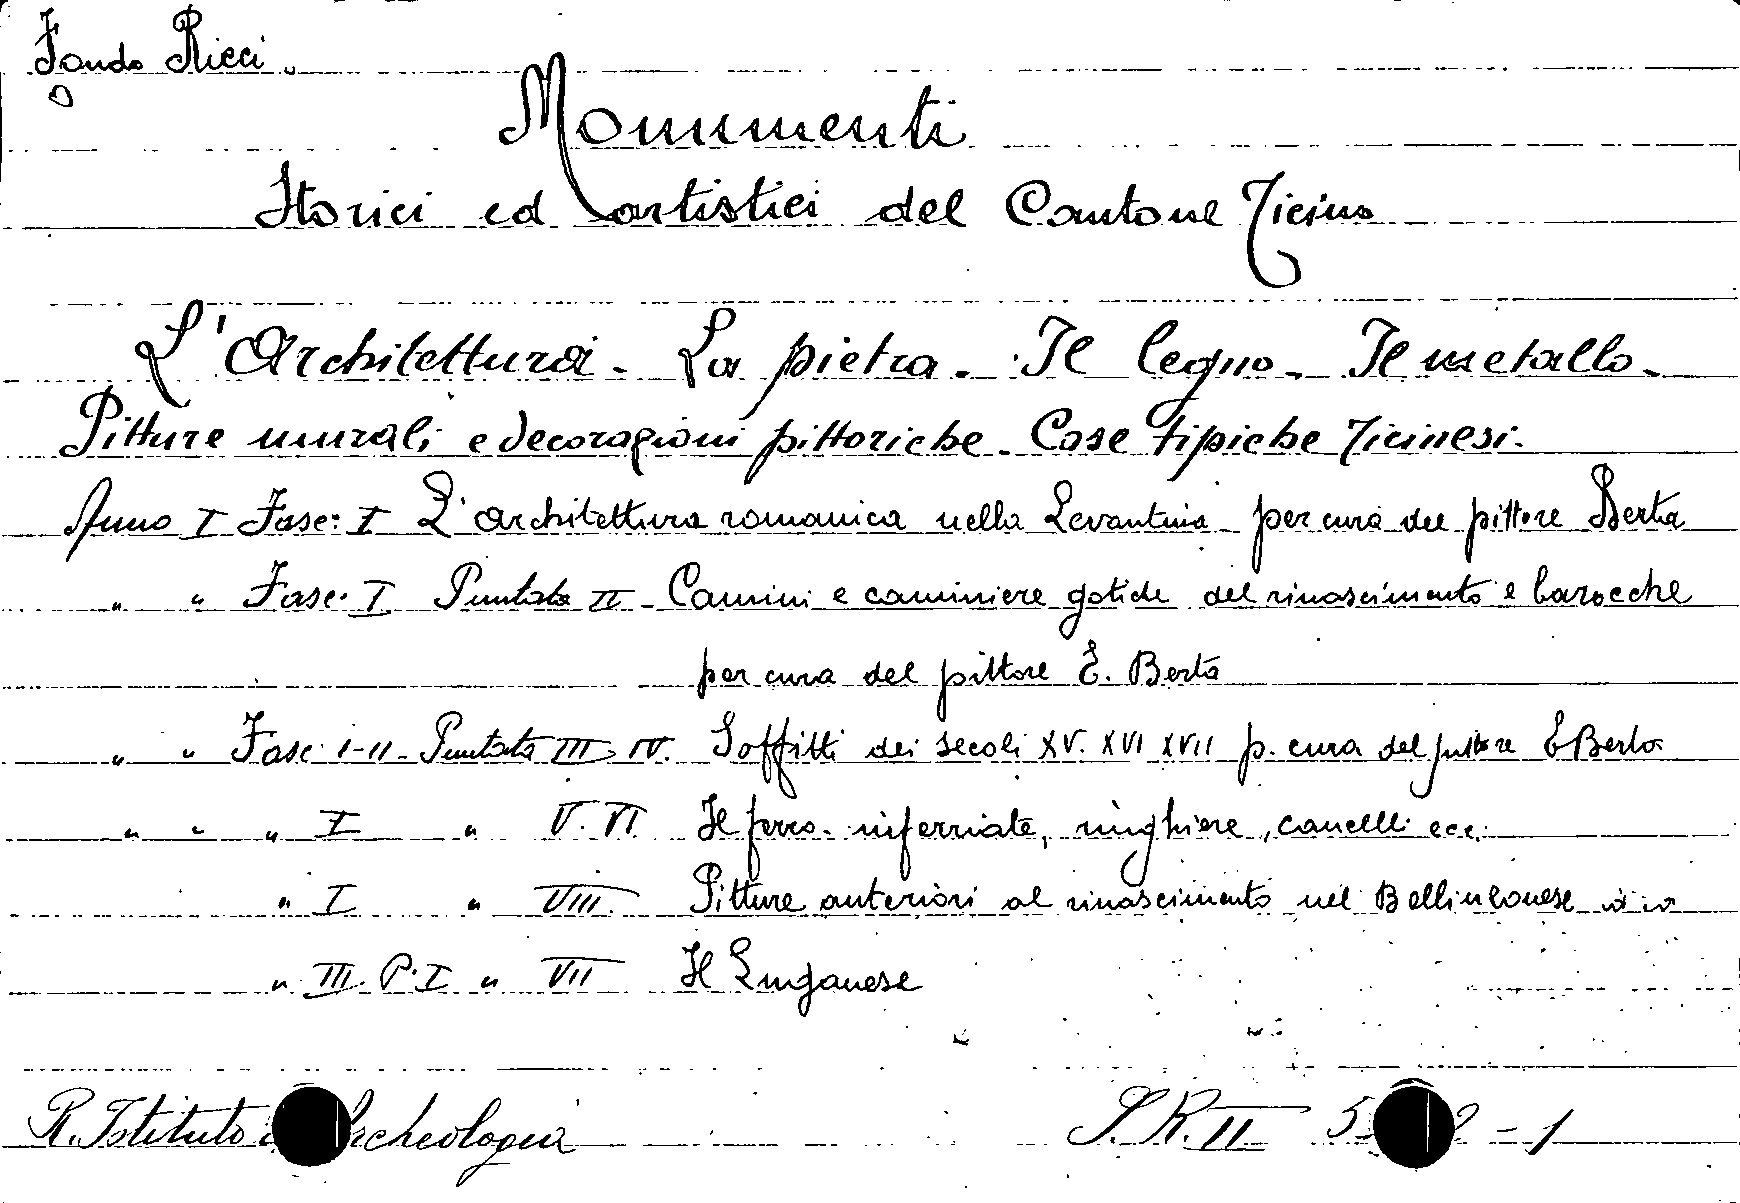 Fondo Ricci.
Monumenti
Storici ed artistici del Cantone Ticino
L'Architettura - La pietra - Il legno - Il metallo -
Pitture murali e decorazioni pittoriche - Case tipiche Ticinesi -
Anno I Fasc: I L'architettura romanica nella Levantina per cura del pittore Berta
" " Fasc. I Puntata II - Camini e caminiere gotiche del rinascimento e barocche
per cura del pittore E. Berta
" " Fasc. I-II - Puntata III IV. Soffitti dei secoli XV. XVI XVII p. cura del pittore E Berta
" " " I " V. VI. Il ferro - inferriate, ringhiere, cancelli ecc.
" I " VIII. Pitture anteriori al rinascimento nel Bellinzonese
" III. P. I " VII Il Luganese
R. Istituto Archeologia
S. R. II 5 2 - 1